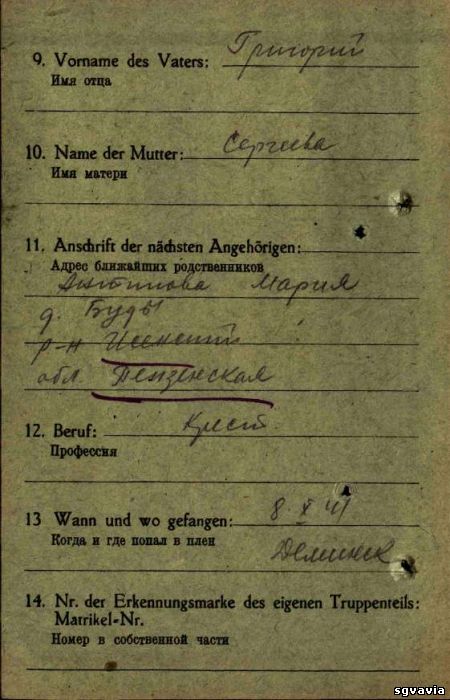 9. Vorname des Vaters: Григорий
Имя отца
10. Name der Mutter: Сергеева
Имя матери
11. Anschrift der nächsten Angehörigen:
Адрес ближайших родственников
Мария
д. Буды
р-н
обл. Пензенская
12. Beruf: Крест.
Профессия
13 Wann und wo gefangen: 8 X 41
Когда и где попал в плен
14. Nr. der Erkennungsmarke des eigenen Truppenteils:
Matrikel-Nr.
Номер в собственной части
sgvavia